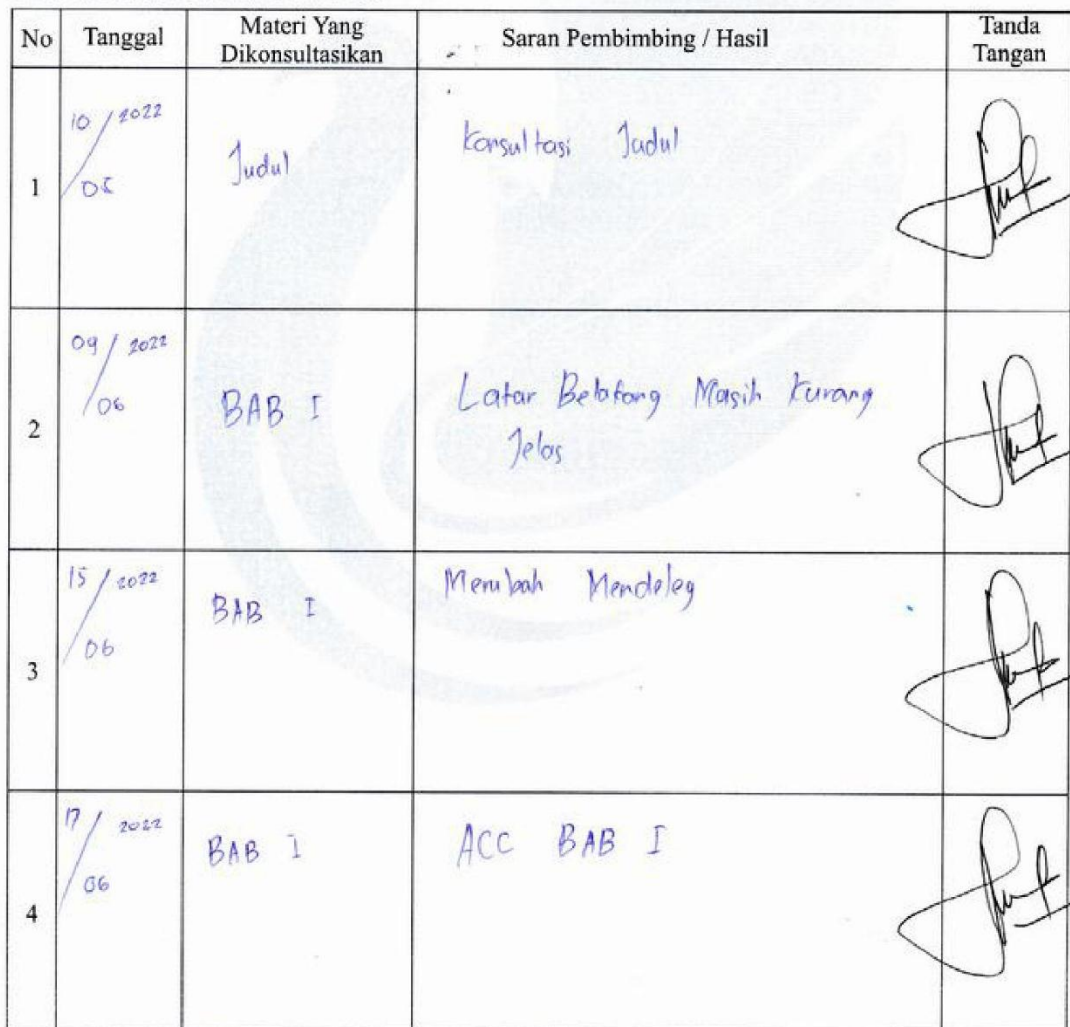 No Tanggal Materi Yang Dikonsultasikan Saran Pembimbing / Hasil Tanda Tangan
1 10/05 2022 Judul Konsultasi Judul
2 09/06 2022 BAB I Latar Belakang Masih Kurang
Jelas
3 15/06 2022 BAB I Merubah Mendeley
4 17/06 2022 BAB I ACC BAB I